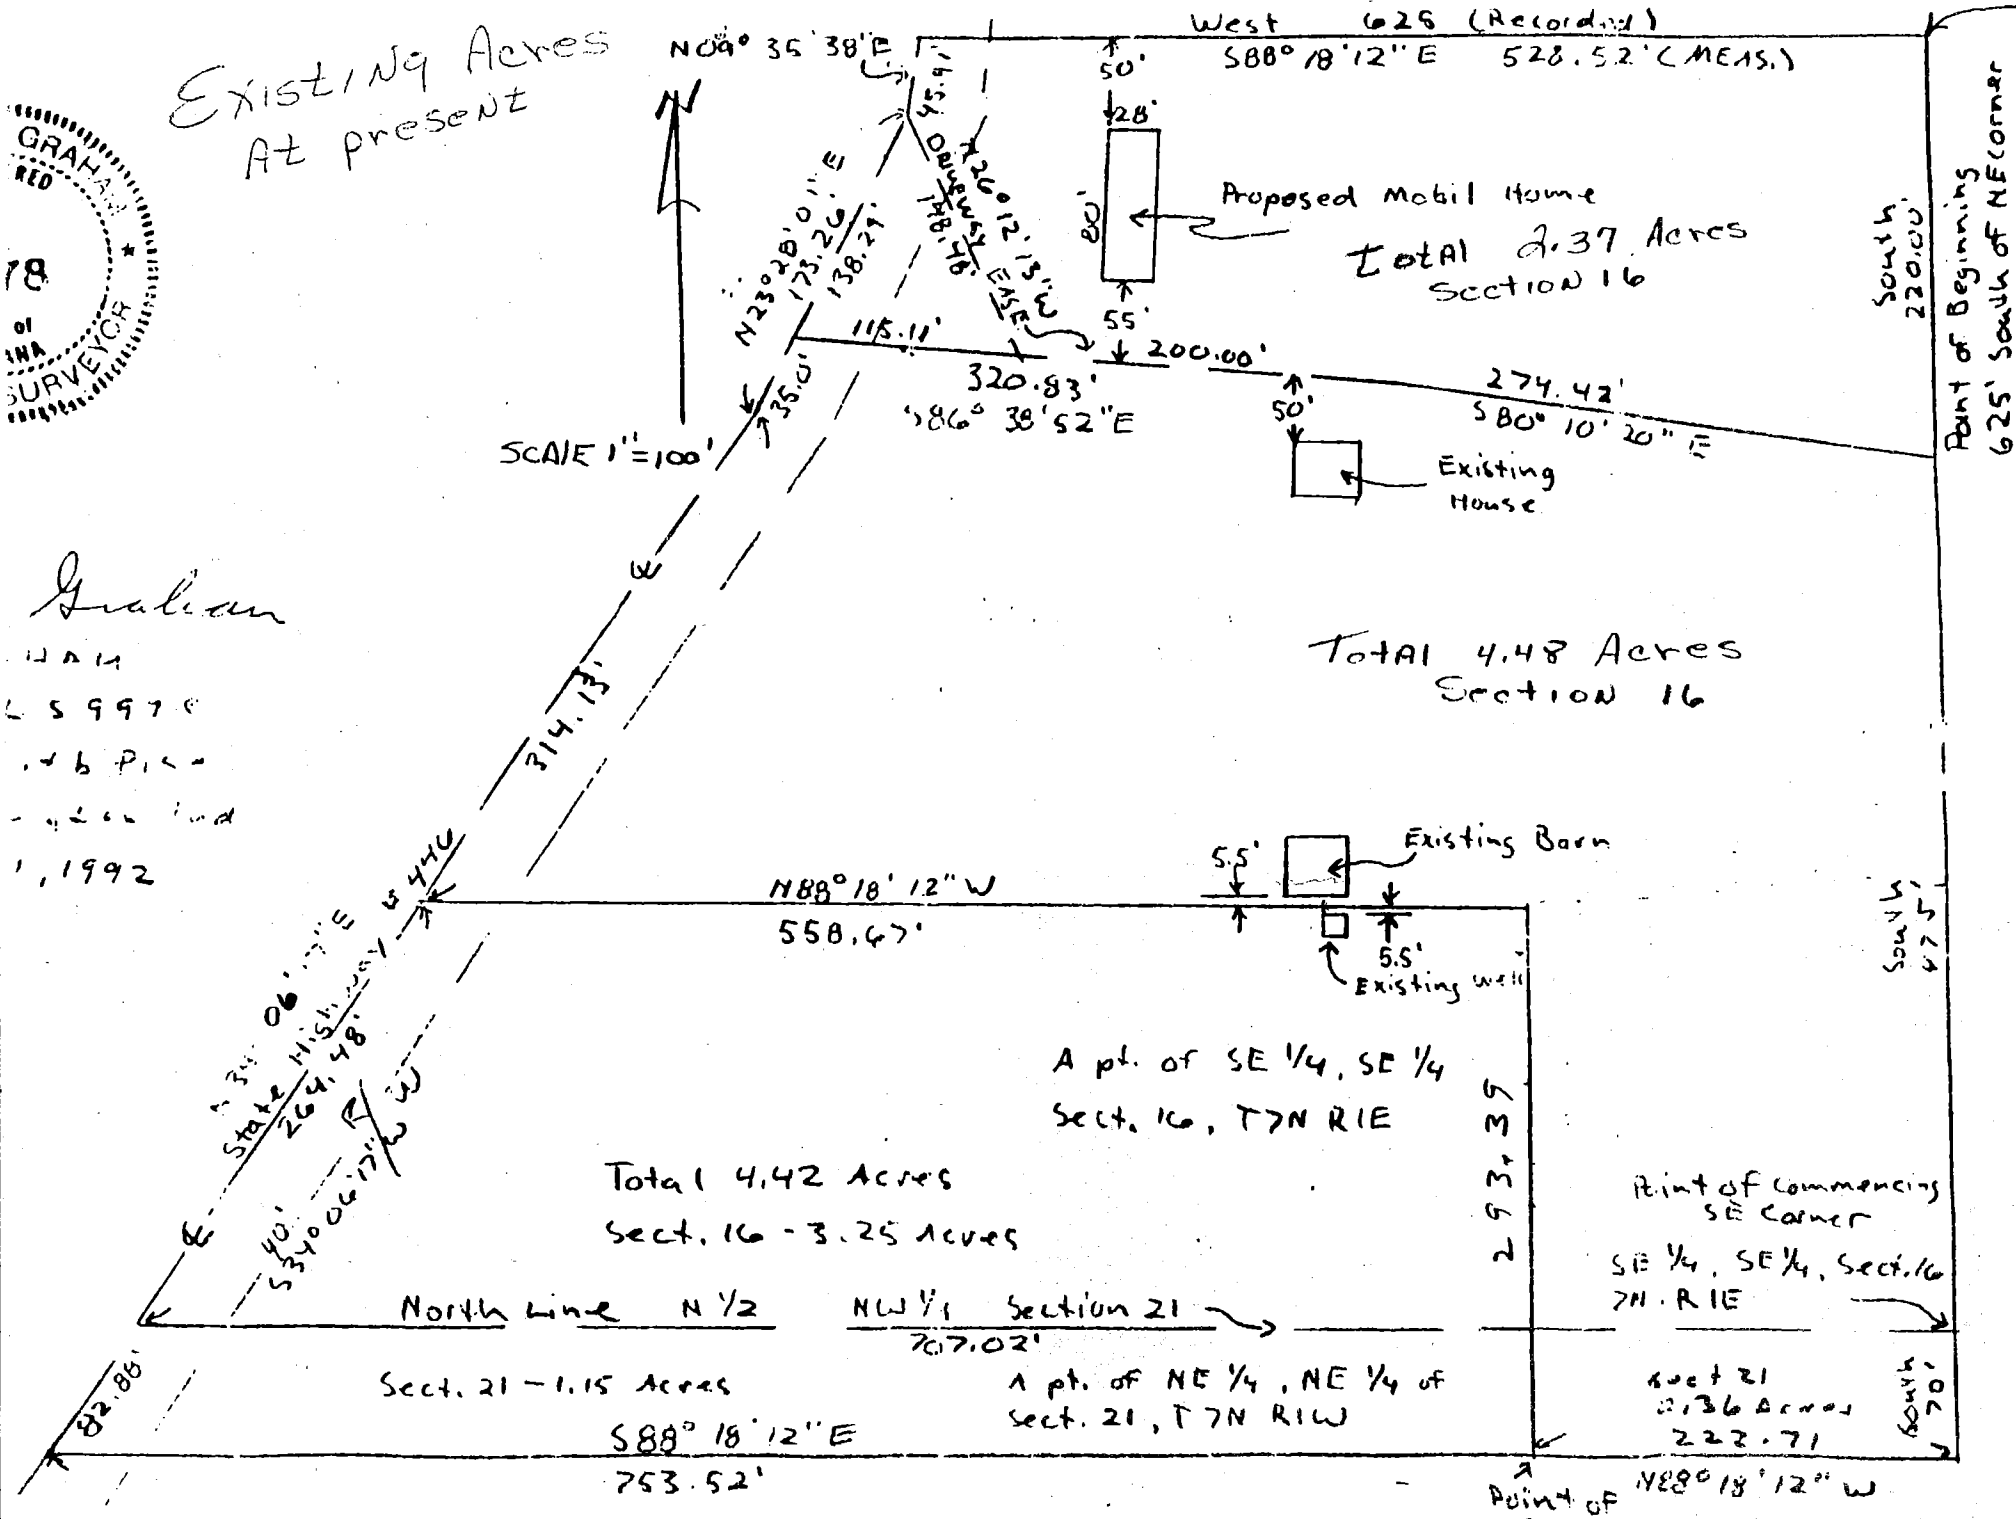 Existing Acres
At present
GRAHAM
RED
78
of
SURVEYOR
Graham
1, 1992
West 625 (Recorded)
N09° 35' 38" E
S88° 18' 12" E 528.52' (MEAS.)
45.91
50'
28'
80'
55'
Proposed Mobil Home
Total 2.37 Acres
Section 16
South
220.00'
Point of Beginning
625' South of NE Corner
N23° 28' 01" E
173.26'
138.29'
N26° 12' 13" W
DRIVEWAY EASE
148.48'
115.11'
200.00'
320.83'
S86° 38' 52" E
274.42'
S80° 10' 20" E
35.0'
SCALE 1"=100'
50'
Existing
House
Total 4.48 Acres
Section 16
314.13'
5.5'
Existing Barn
N88° 18' 12" W
558.67'
5.5'
Existing well
South
475'
34° 06' 17" E
State Highway 446
264.48'
R/W
40'
S34° 06' 17" W
A pt. of SE 1/4, SE 1/4
Sect. 16, T7N R1E
293.39
Total 4.42 Acres
Sect. 16 - 3.25 Acres
Point of Commencing
SE Corner
SE 1/4, SE 1/4, Sect. 16
7N. R1E
North Line N 1/2 NW 1/4 Section 21
707.02'
82.88'
Sect. 21 - 1.15 Acres
A pt. of NE 1/4, NE 1/4 of
Sect. 21, T7N R1W
Sect 21
Acres
222.71
South
70'
S88° 18' 12" E
753.52'
N88° 18' 12" W
Point of